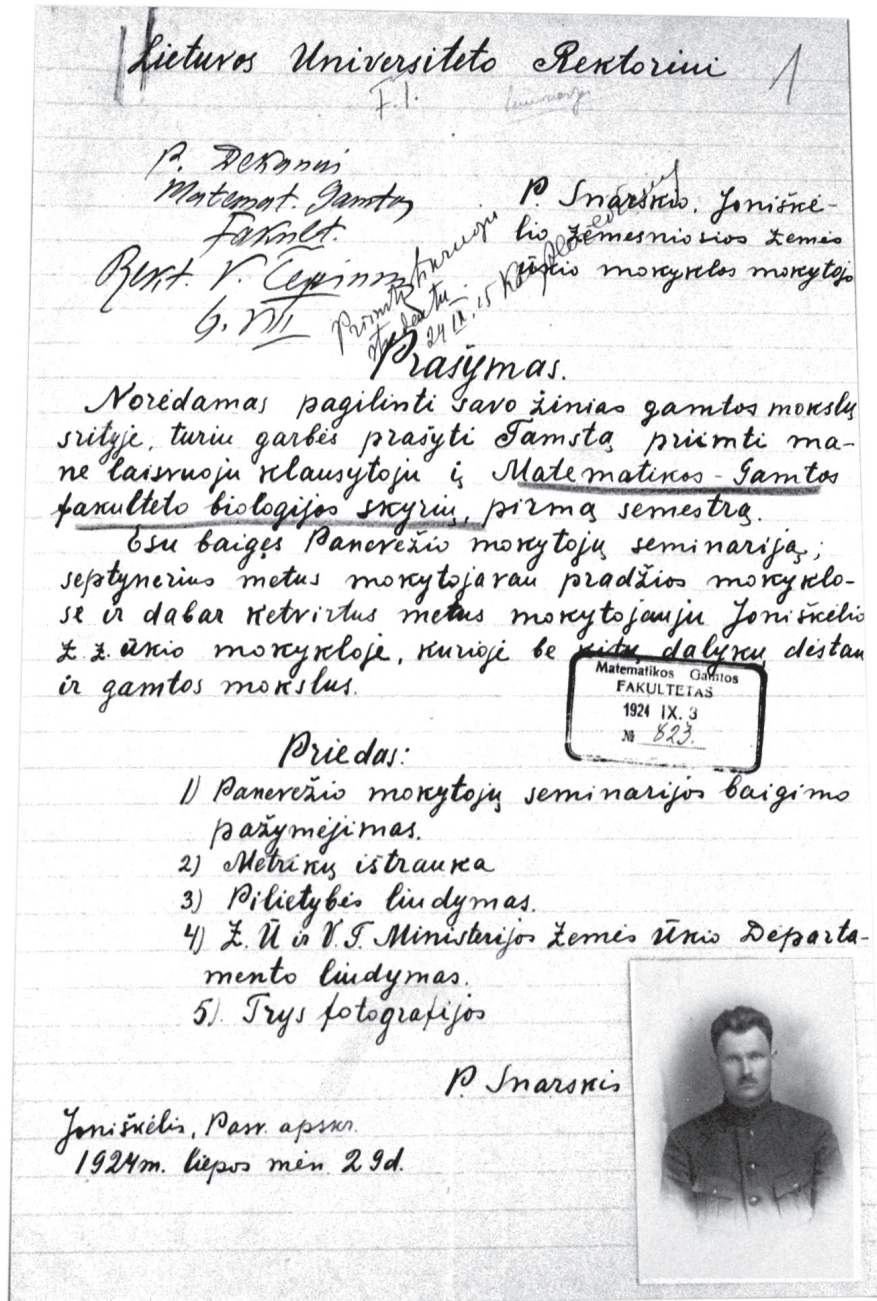 Lietuvos Universiteto Rektoriui
1
F. I.
P. Dekanui
Matemat. Gamtos
Fakult.
Rekt. V. Čepinsk
6. VIII
P. Snarskio, Joniškė-
lio žemesniosios žemės
ūkio mokyklos mokytojo
studentu
24 IX. 15
Prašymas.
Norėdamas pagilinti savo žinias gamtos mokslų
srityje, turiu garbės prašyti Tamstą priimti ma-
ne laisvuoju klausytoju į Matematikos-Gamtos
fakulteto biologijos skyrių, pirmą semestrą.
Esu baigęs Panevėžio mokytojų seminariją;
septynerius metus mokytojavau pradžios mokyklo-
se ir dabar ketvirtus metus mokytojauju Joniškėlio
ž. ž. ūkio mokykloje, kurioje be kitų dalykų dėstau
ir gamtos mokslus.
Matematikos Gamtos
FAKULTETAS
1924 IX. 3
№ 823.
Priedas:
1) Panevėžio mokytojų seminarijos baigimo
pažymėjimas.
2) Metrikų ištrauka
3) Pilietybės liudymas.
4) Ž. Ū ir V. T. Ministerijos Žemės Ūkio Departa-
mento liudymas.
5) Trys fotografijos
P. Snarskis
Joniškėlis, Pasv. apskr.
1924 m. liepos mėn. 29 d.